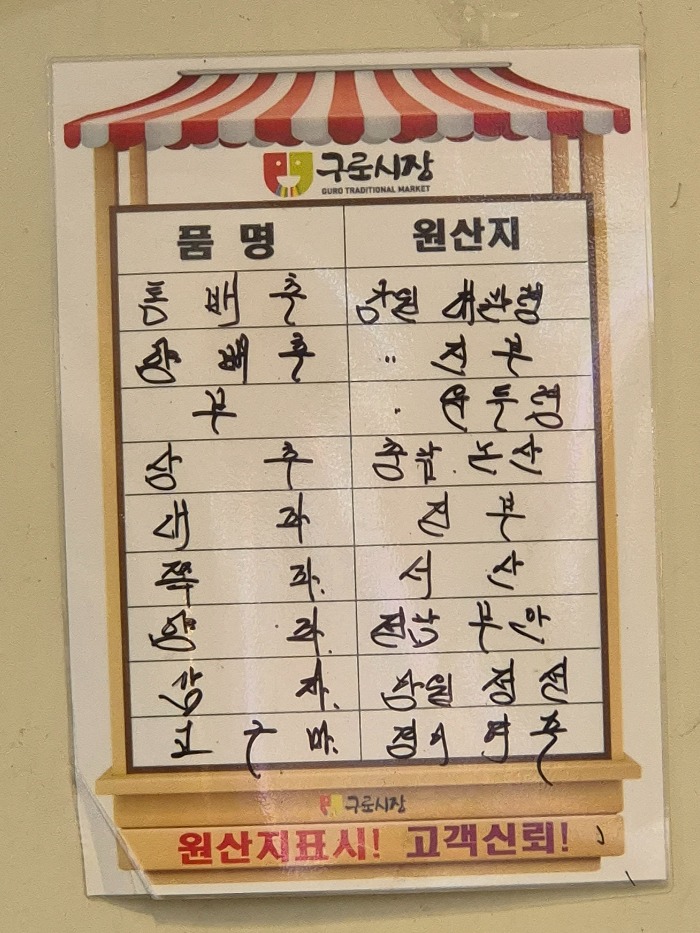 구로시장
GURO TRADITIONAL MARKET
품 명 원산지
통 배 추 강원 대관령
양 배 추 〃 진 부
무 〃
상 추 충남. 논산
대 파 진 부
쪽 파. 서 산
양 파. 전남 무안
감 자. 강원 정선
고 구 마. 경기 여주
구로시장
원산지표시! 고객신뢰!